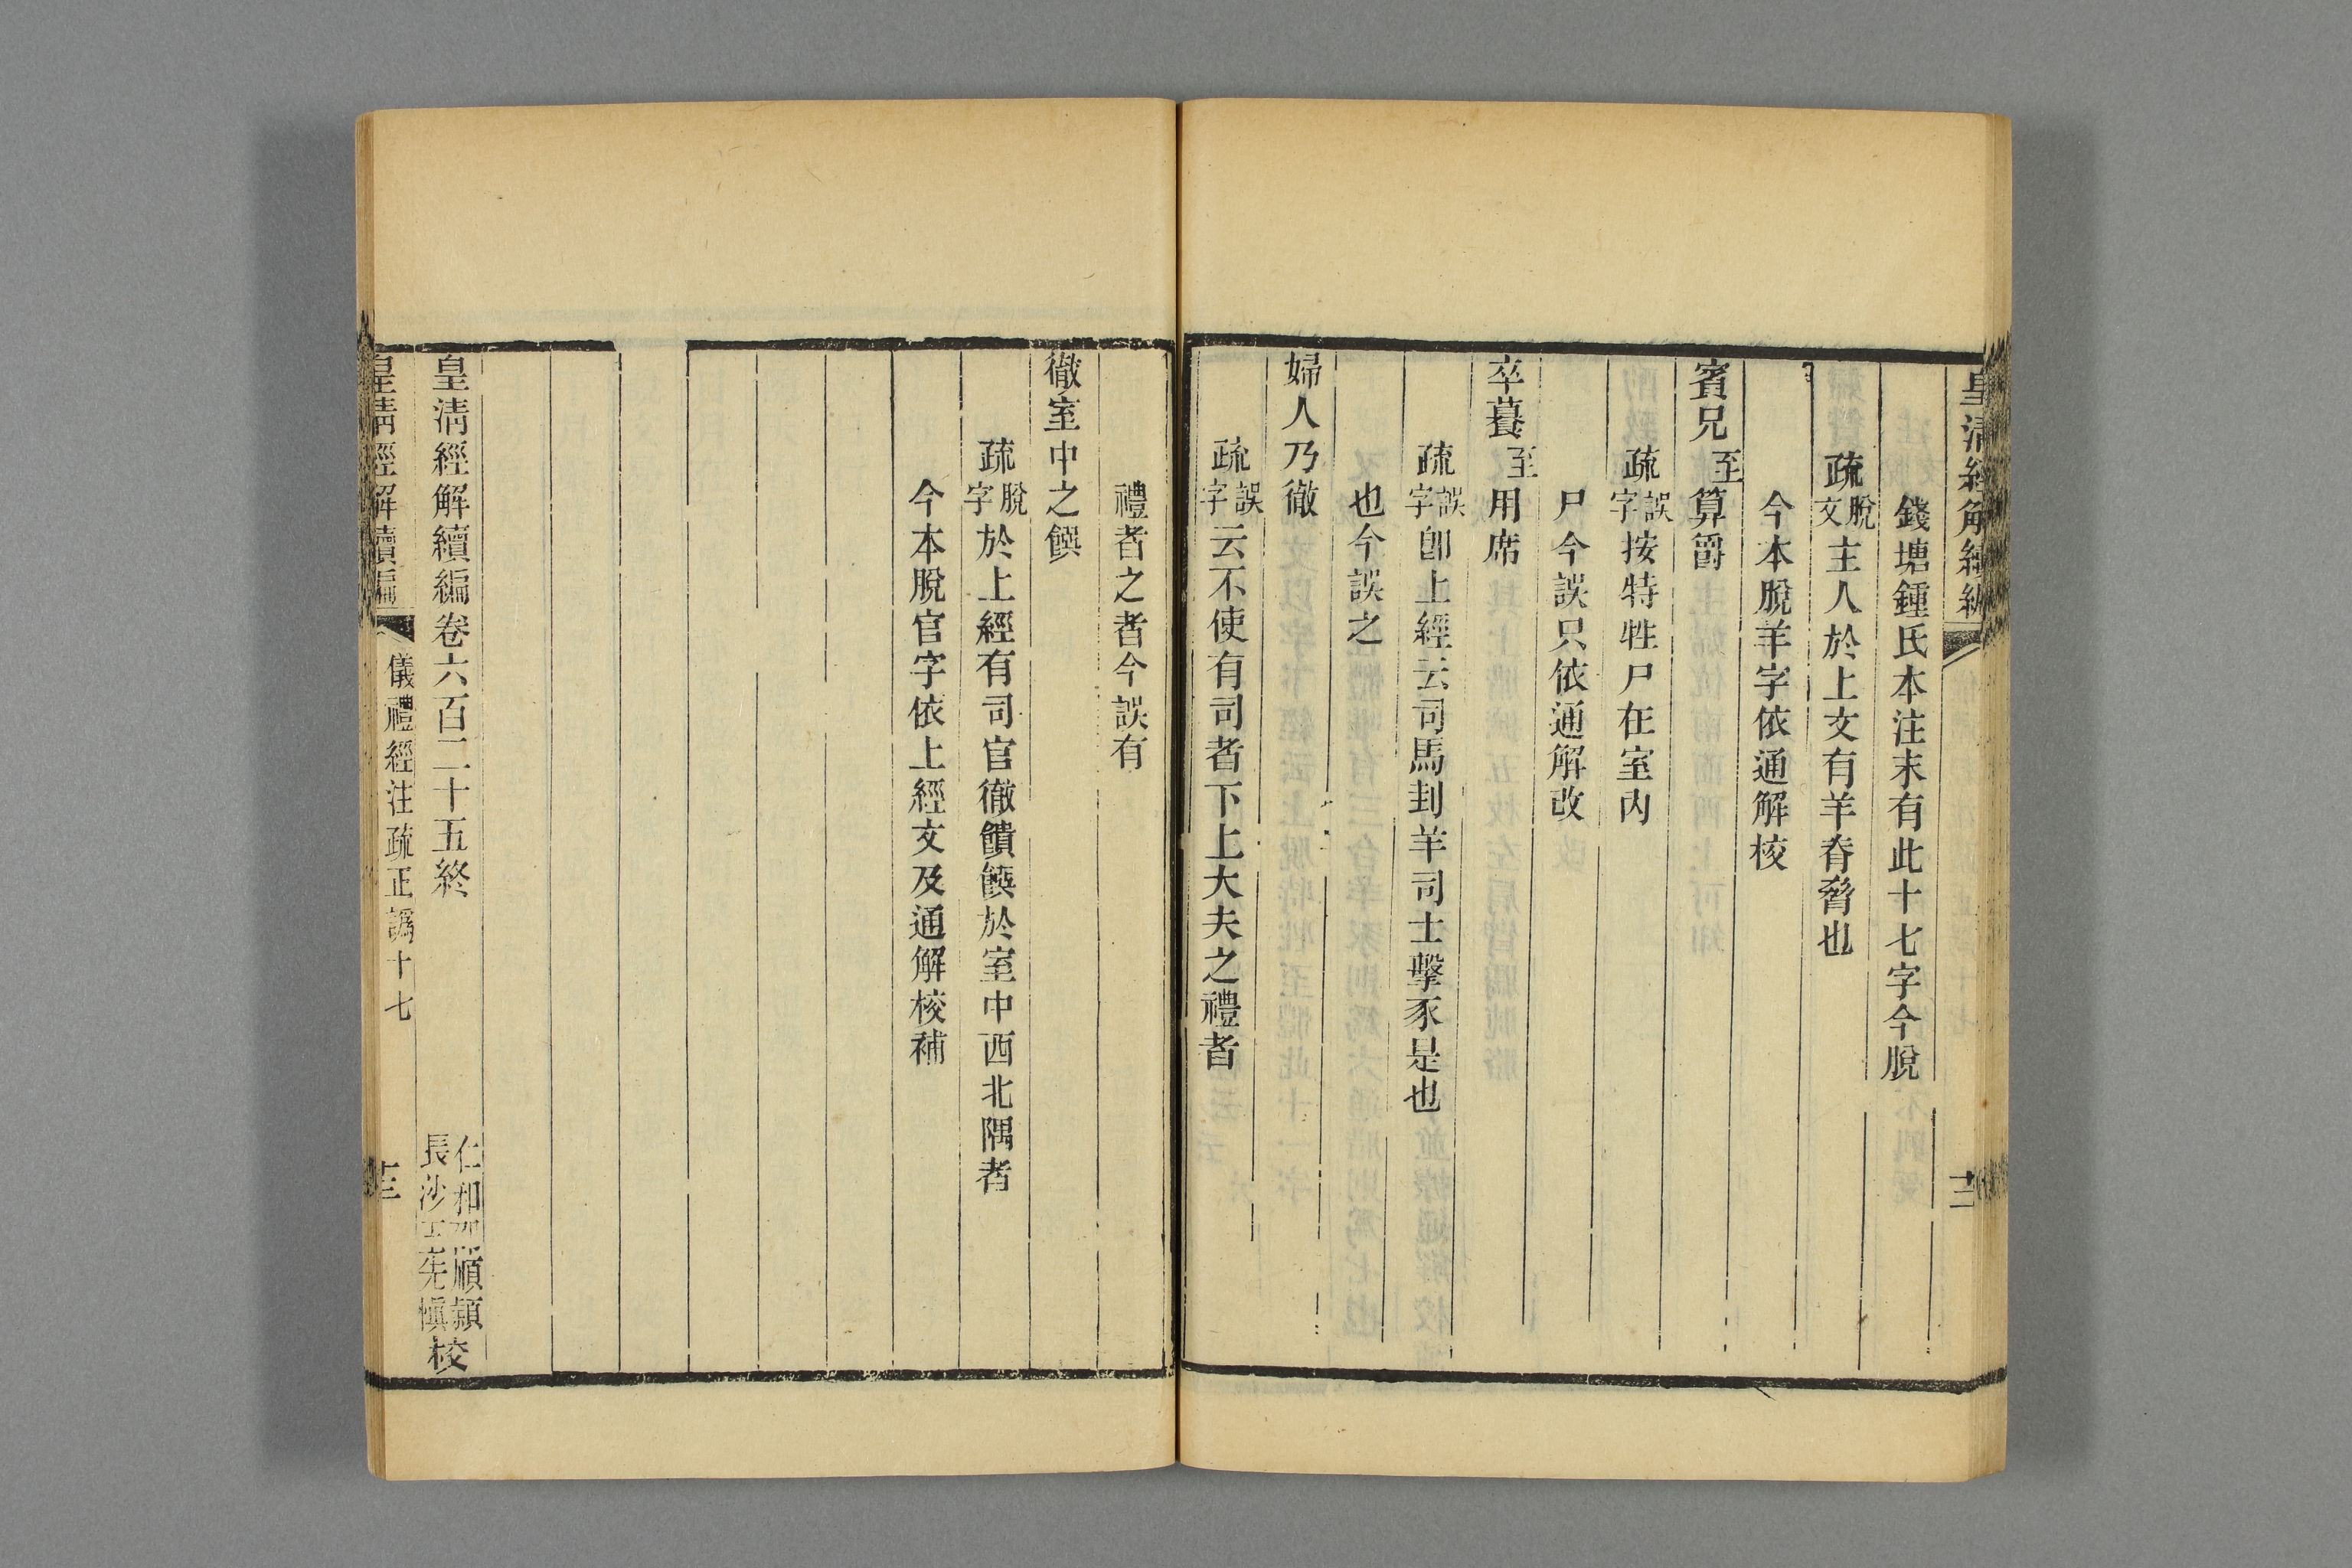 皇清經解續編
十二
錢塘鍾氏本注末有此十七字今脫
疏脫文主人於上文有羊脊脅也
今本脫羊字依通解校
賓兄至算爵
疏誤字按特牲尸在室內
尸今誤只依通解改
卒䭕至用席
疏誤字卽上經云司馬刲羊司士擊豕是也
也今誤之
婦人乃徹
疏誤字云不使有司者下上大夫之禮者
禮者之者今誤有
徹室中之饌
疏脫字於上經有司官徹饋饌於室中西北隅者
今本脫官字依上經文及通解校補
皇清經解續編卷六百二十五終
仁和 順穎長沙王先愼校
皇清經解續編
儀禮經注疏正譌十七
十三